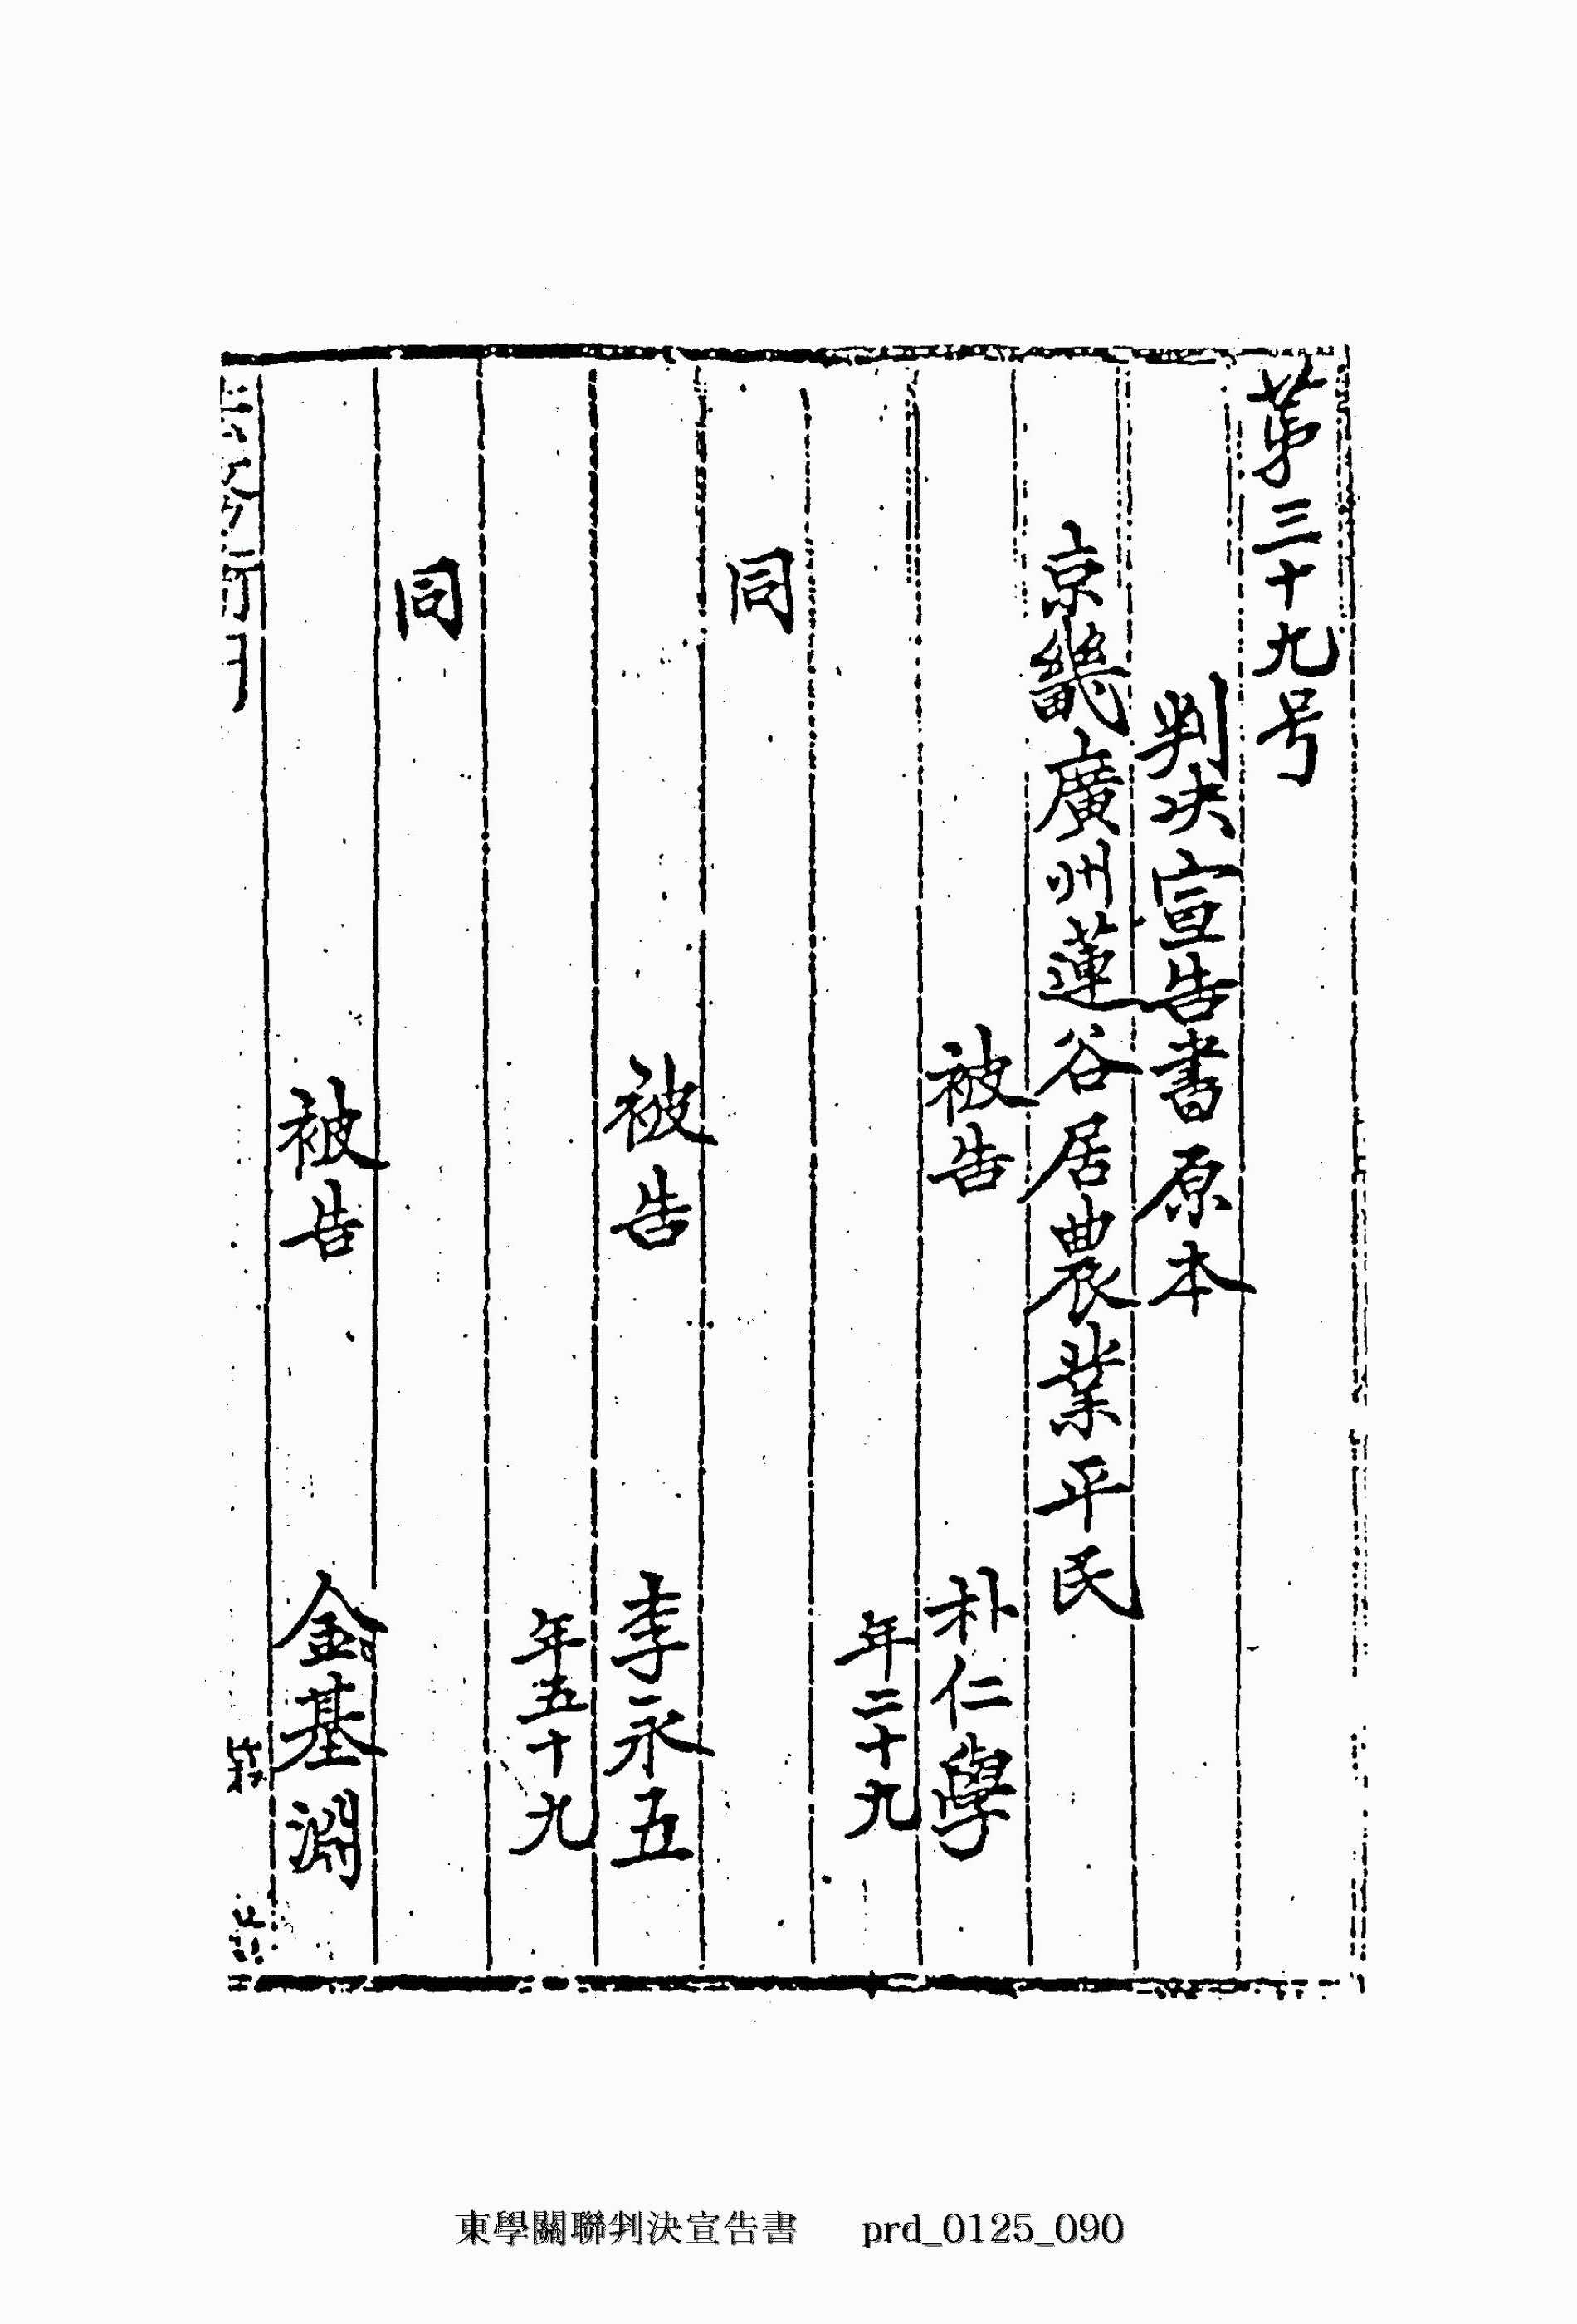 第三十九号
判决宣告書原本
京畿廣州蓮谷居農業平民
被告 朴仁學
年二十九
同
被告 李永五
年五十九
同
被告 金基淵
東學關聯判決宣告書 prd_0125_090